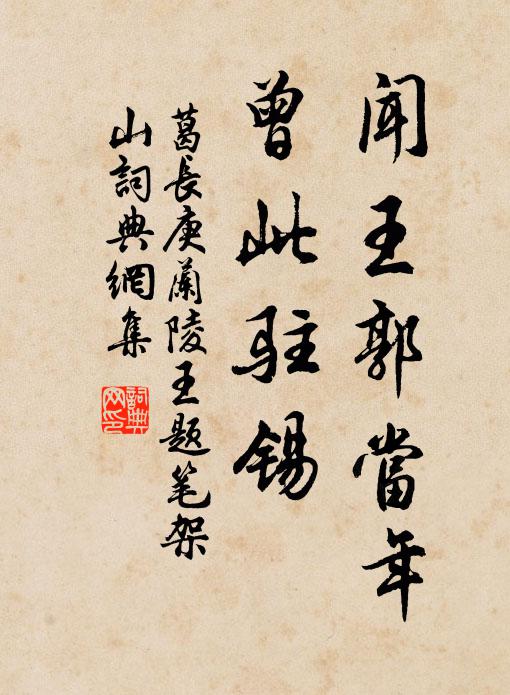 闻王郭當年
曾此駐锡
葛長庚蘭陵王题笔架
山詞典網集
詞典
网印